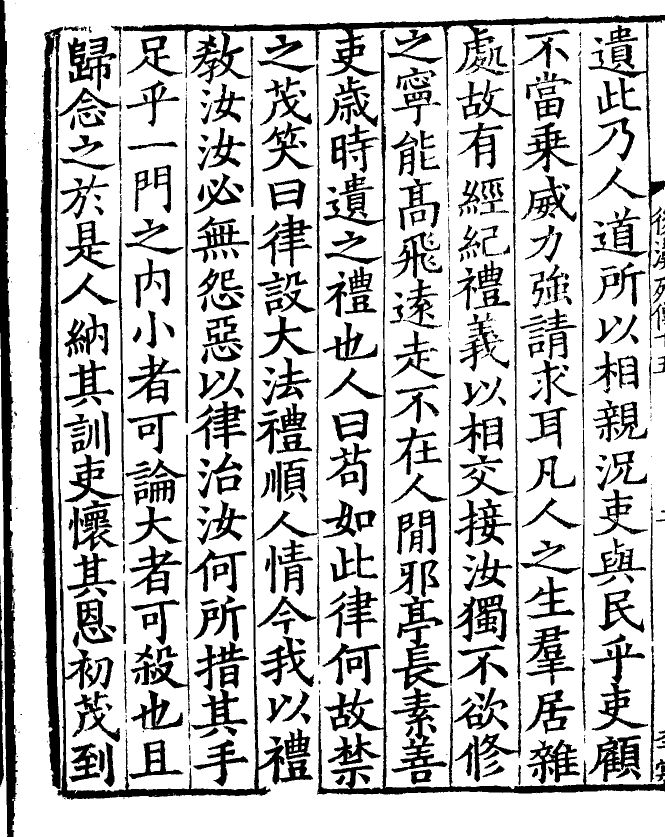 後漢列傳十五
遺此乃人道所以相親況吏與民乎吏顧
不當乗威力強請求耳凡人之生羣居雜
處故有經紀禮義以相交接汝獨不欲修
之寧能髙飛逺走不在人閒邪亭長素善
吏歳時遺之禮也人曰苟如此律何故禁
之茂笑曰律設大法禮順人情今我以禮
教汝汝必無怨惡以律治汝何所措其手
足乎一門之内小者可論大者可殺也且
歸念之於是人納其訓吏懷其恩初茂到